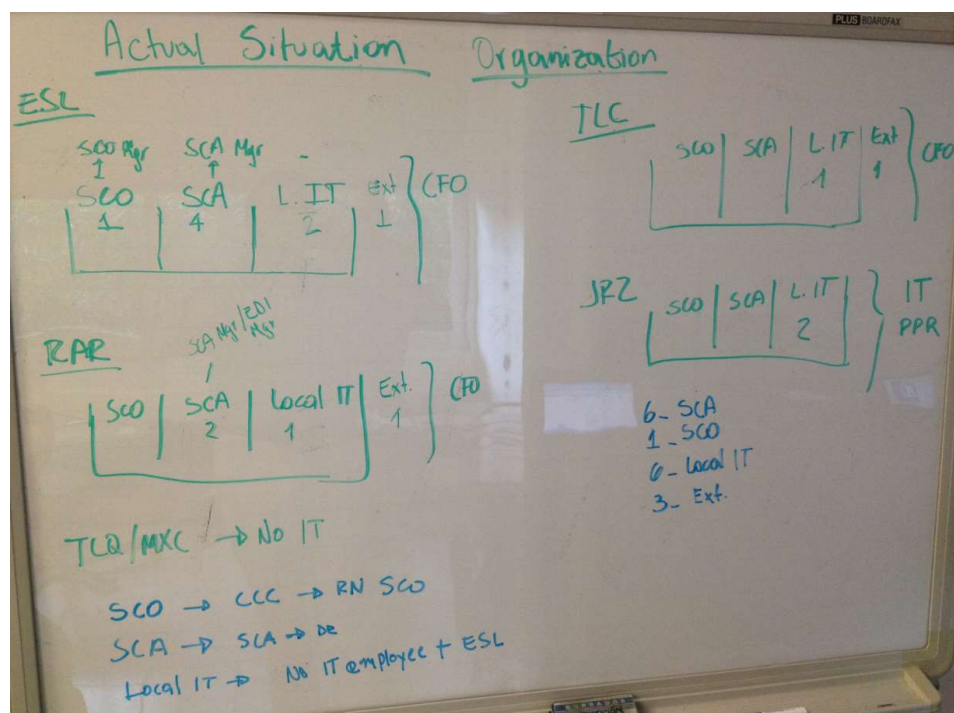 PLUS BOARDFAX
Actual Situation Organization
ESL
SCO Mgr SCA Mgr -
SCO SCA L. IT Ext CFO
1 4 2 1
RAR
SCA Mgr/EDI Mgr
SCO SCA Local IT Ext. CFO
2 1 1
TLQ/MXC → No IT
SCO → CCC → RN SCO
SCA → SCA → DE
Local IT → No IT employee + ESL
TLC
SCO SCA L. IT Ext CFO
1 1
JRZ SCO SCA L. IT IT
2 PPR
6- SCA
1- SCO
6- Local IT
3- Ext.